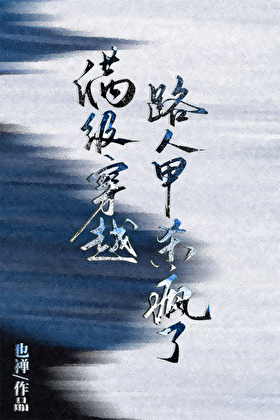 满级穿越
路人甲杀疯了
也禅/作品